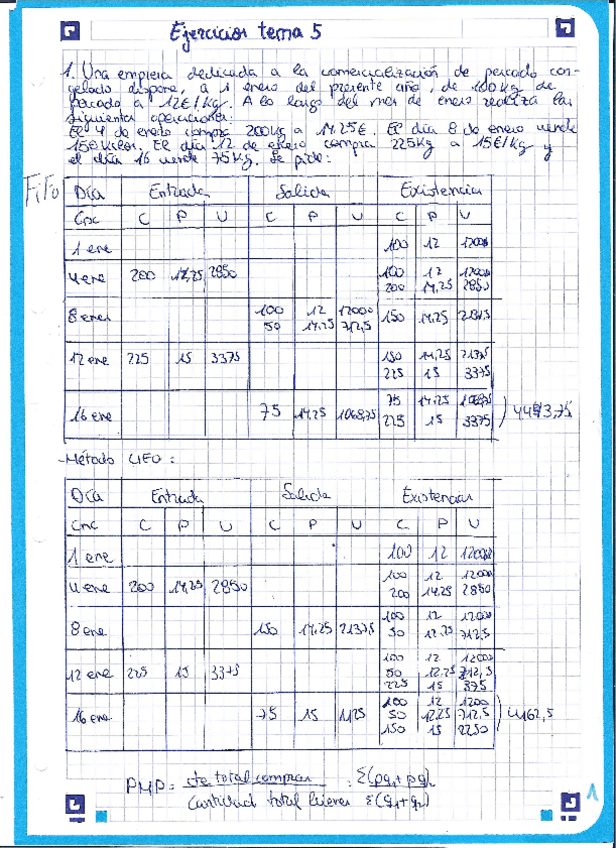 Ejercicios tema 5
1. Una empresa dedicada a la comercialización de pescado con-
gelado dispone, a 1 enero del presente año, de 100 kg de
pescado a 12€/kg. A lo largo del mes de enero realiza las
siguientes operaciones:
El 4 de enero compra 200kg a 14.25€. El día 8 de enero vende
150 kilos. El día 12 de enero compra 225kg a 15€/kg y
el día 16 vende 75kg. Se pide:
FiFo
Día Entrada Salida Existencias
Cpc C P V C P V C P V
1 ene 100 12
4 ene 200 14,25 2850 100 12
200 14.25 2850
8 ene 100 12 50 14.25 712,5 150 14,25
12 ene 225 15 3375 150 14,25 2137,5
225 15 3375
16 ene 75 14.25 1068,75 75 14.25 1068,75
225 15 3375
4443,75
-Método LIFO:
Día Entrada Salida Existencias
Cnc C P V C P V C P V
1 ene 100 12
4 ene 200 14,25 2850 100 12
200 14.25 2850
8 ene 150 14.25 2137,5 100 12
50 712,5
12 ene 225 15 3375 100 12
50 12.25 712,5
225 15 375
16 ene 75 15 1125 100 12 1200
50 12.25 712.5
150 15 2250
4162,5
PMP = ste total compras : Σ(pq1+pq)
Cantidad total Σ(q1+q2)
1